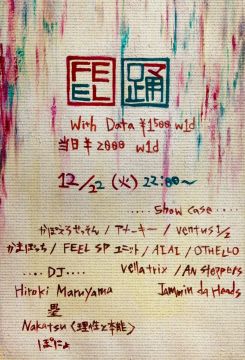 FEEL 踊
With Data ¥1500 w1d
当日 ¥2000 w1d
12/22 (火) 22:00〜
..... Show case .....
かぽえらせっそん / アナーキー / ventus 1/2
かまぼっち / FEEL SP ユニット / AIAI / OTHELLO
vellatrix / An steppers
.... DJ ....
Hiroki Maruyama
Jammin da Heads
塁
Nakatsu 〈理性と本能〉
ぽによ